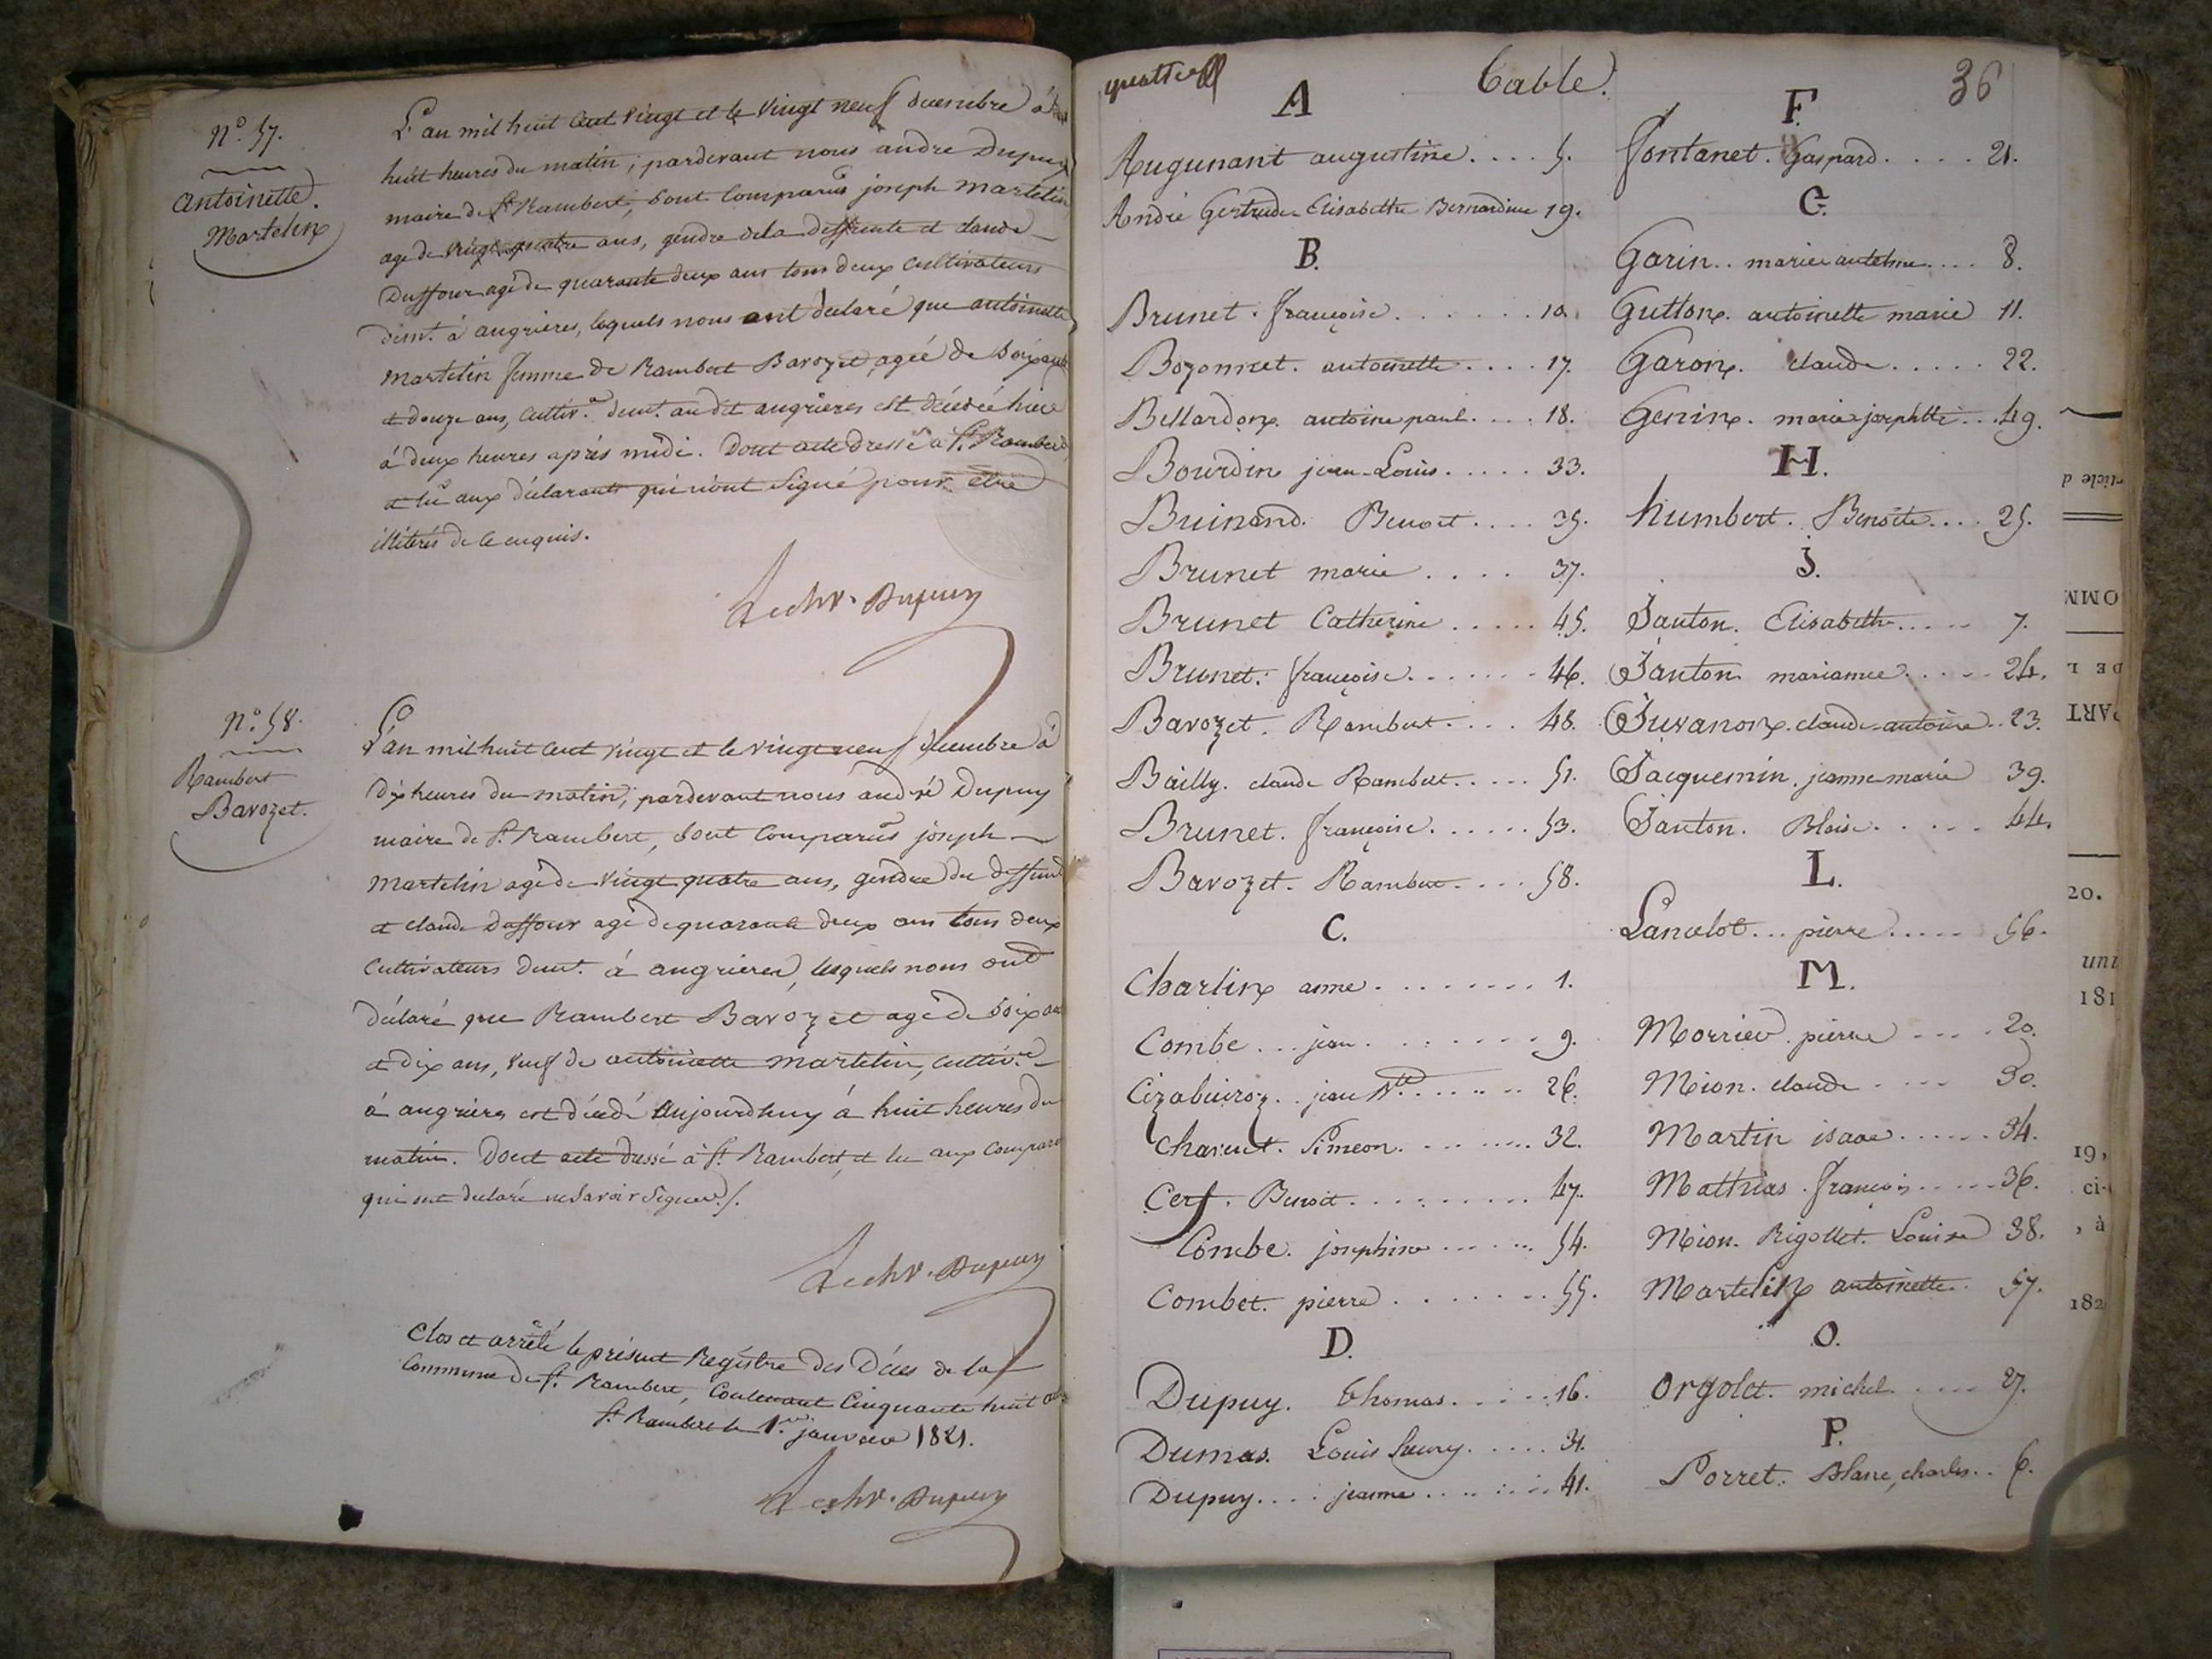 N.° 57.
Antoinette.
Martelin
L'an mil huit cent vingt et le vingt neuf decembre à
huit heures du matin, pardevant nous andre Dupuy
maire de St Rambert, sont comparus joseph martelin
agé de vingt quatre ans, gendre dela deffunte et claude
Duffour agé de quarante deux ans tous deux cultivateurs
demt. à angrieres, lequels nous ont declaré que antoinette
martelin femme de Rambert Bavozet, agée de soixante
et douze ans, cultiv.e demt. au dit angrieres est décédée hier
à deux heures aprés midi. Dont acte dressé à St. Rambert,
et lu aux déclarants qui n'ont signé pour être
illiterés de ce enquis.
Dupuy
N.° 58.
Rambert
Bavozet.
L'an mil huit cent vingt et le vingt neuf decembre à
dix heures du matin, pardevant nous andré Dupuy
maire de St. Rambert, sont comparus joseph
martelin agé de vingt quatre ans, gendre du deffunt
et claude Duffour agé de quarante deux ans tous deux
cultivateurs demt. à angrieres, lesquels nous ont
déclaré que Rambert Bavozet agé de soixante
et dix ans, veuf de antoinette martelin, cultiv.r
à angrieres est décédé aujourdhuy à huit heures du
matin. Dont acte dressé à St. Rambert, et lu aux comparants
qui ont declaré ne savoir signer./.
Dupuy
Clos et arrêté le présent Registre des Décès de la
Commune de St. Rambert, Contenant Cinquante huit
St. Rambert le 1.er janvier 1821.
Dupuy
Table.
36
A
Augunant augustine.... 5.
André Gertrude Elisabethe Bernardine 19.
B.
Brunet. françoise....... 10.
Bozonnet. antoinette.... 17.
Bellardon. antoine paul.... 18.
Bourdin jean-Louis..... 33.
Buinand. Benoit.... 35.
Brunet marie.... 37.
Brunet Catherine..... 45.
Brunet. françoise....... 46.
Bavozet. Rambert.... 48.
Bailly. claude Rambert..... 51.
Brunet. françoise...... 53.
Bavozet. Rambert.... 58.
C.
Charlin anne........ 1.
Combe... jean........ 9.
jean...... 26.
Charvet. Simeon........ 32.
Cerf. Benoit......... 47.
Combe. josephine...... 54.
Combet. pierre........ 55.
D.
Dupuy. Thomas..... 16.
Dumas. Louis henry..... 31.
Dupuy.... jeanne....... 41.
F.
fontanet. Gaspard..... 21.
G.
Garin.. marie antelme.... 8.
Gutton. antoinette marie 11.
Garon. claude..... 22.
Genin. marie josephtte... 49.
H.
humbert. Benoite.... 25.
J.
Janton. Elisabeth..... 7.
Janton marianne..... 24.
Juvanon. claude-antoine.. 23.
Jacquemin. jeanne marie 39.
Janton. Blaise..... 44.
L.
Lancelot... pierre..... 56.
M.
Morrier. pierre.... 20.
Mion. claude.... 30.
Martin isaac...... 34.
Mathias. françois..... 36.
Mion. Rigollet. Louise 38.
Martelin antoinette. 57.
O.
Orgolet. michel.... 27.
P.
Porret. Blanc, charles.. 6.
OMM
DE L
PART
20.
uni
181
19,
ci-
, à
182